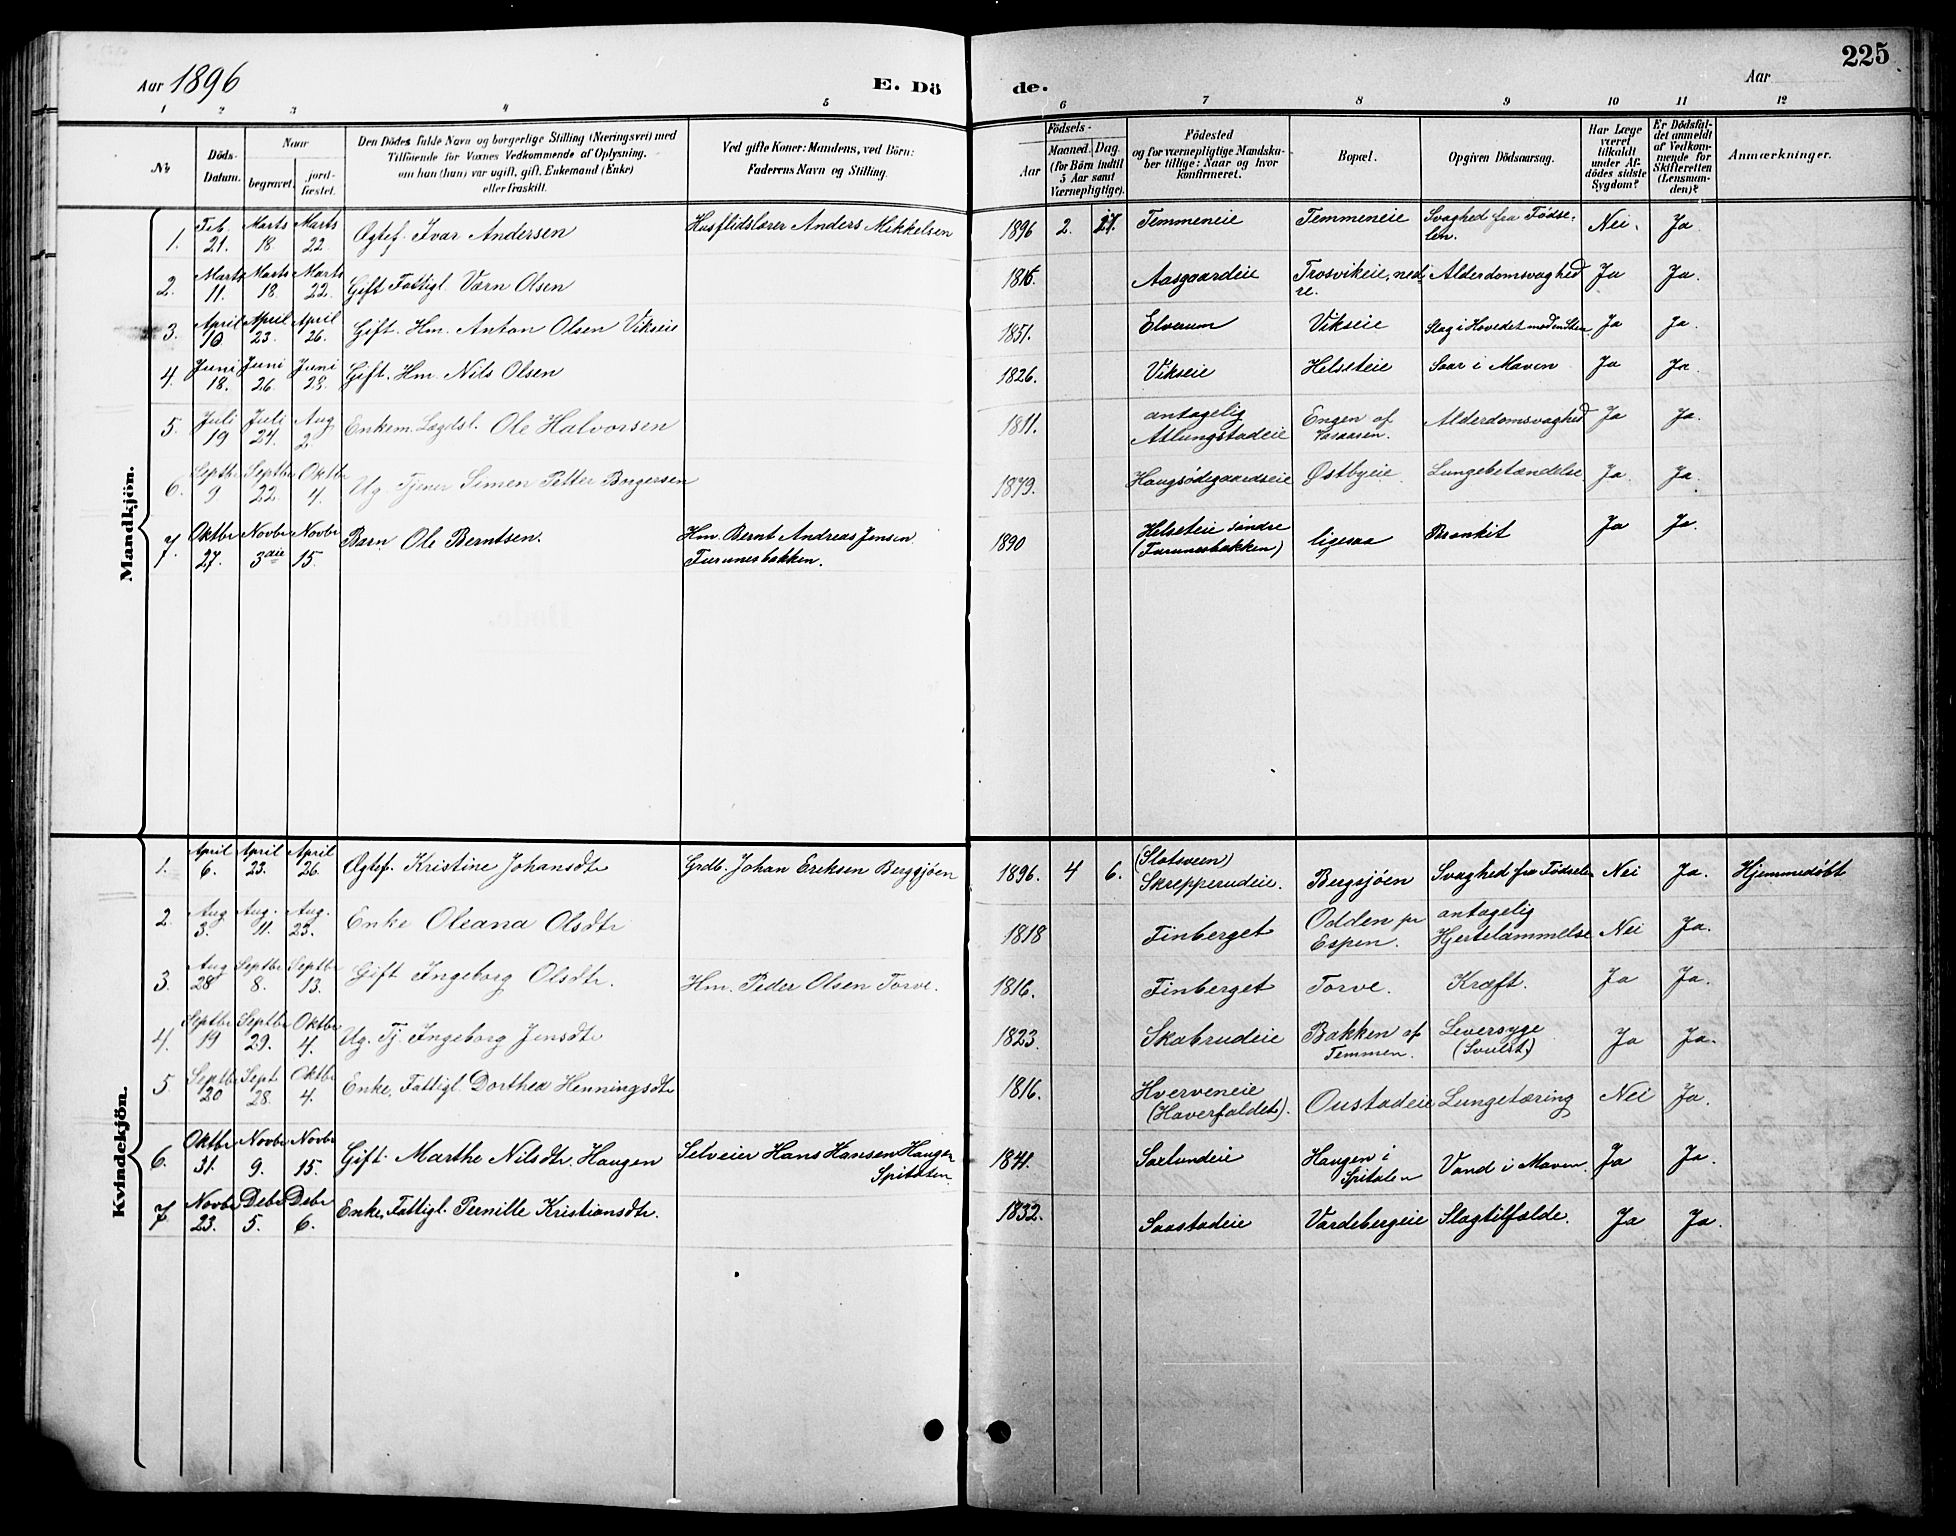 225
Aar 1896
E. Dö
de.
Aar
1 2 3 4 5
6 7 8 9 10 11 12
No
Döds-
Datum.
Naar
begravet.
jord-
fæstet.
Den Dödes fulde Navn og borgerlige Stilling (Næringsvei) med
Tilföiende for Voxnes Vedkommende af Oplysning,
om han (hun) var ugift, gift, Enkemand (Enke)
eller fraskilt.
Ved gifte Koner: Mandens, ved Börn:
Faderens Navn og Stilling.
Födsels-
Aar
Maaned. Dag.
(for Börn indtil
5 Aar samt
Værnepligtige).
Födested
og for værnepligtige Mandska-
ber tillige: Naar og hvor
konfirmeret.
Bopæl.
Opgiven Dödsaarsag.
Har Læge
været
tilkaldt
under Af-
dödes sidste
Sygdom?
Er Dödsfal-
det anmeldt
af Vedkom-
mende for
Skifteretten
(Lensman-
den)?
Anmærkninger.
Mandkjön.
1. Feb. 21. Marts 18 Marts 22. Ægtef. Ivar Andersen Husflidslærer Anders Mikkelsen 1896 2. 21. Temmeneie Temmeneie Svaghed fra Fødse-
len. Nei. Ja.
2. Marts 11. Marts 18. Marts 22. Gift Fattigl. Værn Olsen Aasgaardeie Trosvikeie, ned-
re. Alderdomsvaghed Ja Ja.
3. April 10 April 23. April 26. Gift. Hm. Anton Olsen Vikseie 1851. Elverum Vikseie Slag i Hovedet mod en Sten Ja Ja.
4. Juni 18. Juni 26. Juni 28. Gift. Hm. Nils Olsen 1826. Vikseie Helseteie Saar i Maven Ja Ja.
5. Juli 19 Juli 24. Aug 2. Enkem. Lægdsl. Ole Halvorsen 1811. antagelig
Atlungstadeie Engen af
Vasaasen. Alderdomsvaghed Ja Ja.
6. Septbr 9 Septbr 22. Oktbr 4. Ug. Tjener Simen Petter Bngersen 1879. Haugsødegaardseie Østbyeie. Lungebetændelse. Ja. Ja.
7. Oktbr 27. Novbr 3die Novbr 15. Barn Ole Berntsen. Hm. Bernt Andreas Jensen
Furunesbakken. 1890 Helseteie søndre
(Furunesbakken) ligesaa Bronkit Ja Ja.
Kvindekjön.
1. April 6. April 23. April 26. Ægtef. Kristine Johansdtr Grdb. Johan Eriksen Bergsjøen 1896. 4 6. (Slotsveen)
Skrepperudeie. Bergsjøen Svaghed fra Fødselen Nei Ja. Hjemmedøbt
2. Aug 3. Aug. 11. Aug. 23. Enke Oleana Olsdtr 1818 Finberget Odden pr
Espen. antagelig
Hjertelammelse Nei Ja.
3. Aug 28 Septbr 8. Septbr 13. Gift Ingeborg Olsdtr. Hm. Peder Olsen Torve. 1816. Finberget Torve. Kræft. Ja Ja.
4. Septbr 19 Septbr 29. Oktbr 4. Ug. Tj. Ingeborg Jensdtr 1823. Skabrudeie Bakken af
Temmen. Leversyge
(Svulst) Ja Ja.
5. Septbr 20 Sept 28. Oktbr 4. Enke, Fattigl. Dorthea Henningsdtr 1816. Hverveneie
(Haverfaldet). Oustadeie Lungetæring Nei Ja.
6. Oktbr 31. Novbr 9. Novbr 15. Gift. Marthe Nilsdtr. Haugen Selveier Hans Hansen Haugen
Spitalen. 1841. Saxlundeie Haugen i
Spitalen Vand i Maven. Ja Ja.
7 Novbr 23. Debr 5. Debr 6. Enke, Fattigl. Pernille Kristiansdtr. 1832. Saastadeie Vardebergeie Slagtilfælde. Ja Ja.